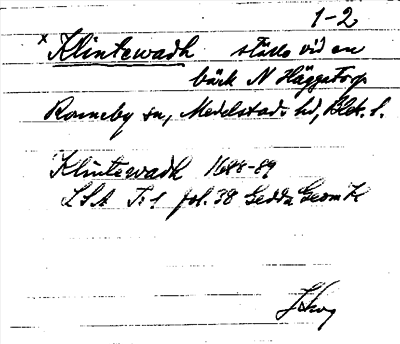 1-2
x Klintewadh ställe vid en
bäck N Häggatorp
Ronneby sn, Medelstads hd, Blek. l.
Klintewadh 1688-89
LSA Ti 1 fol. 38 Gedda Geom K